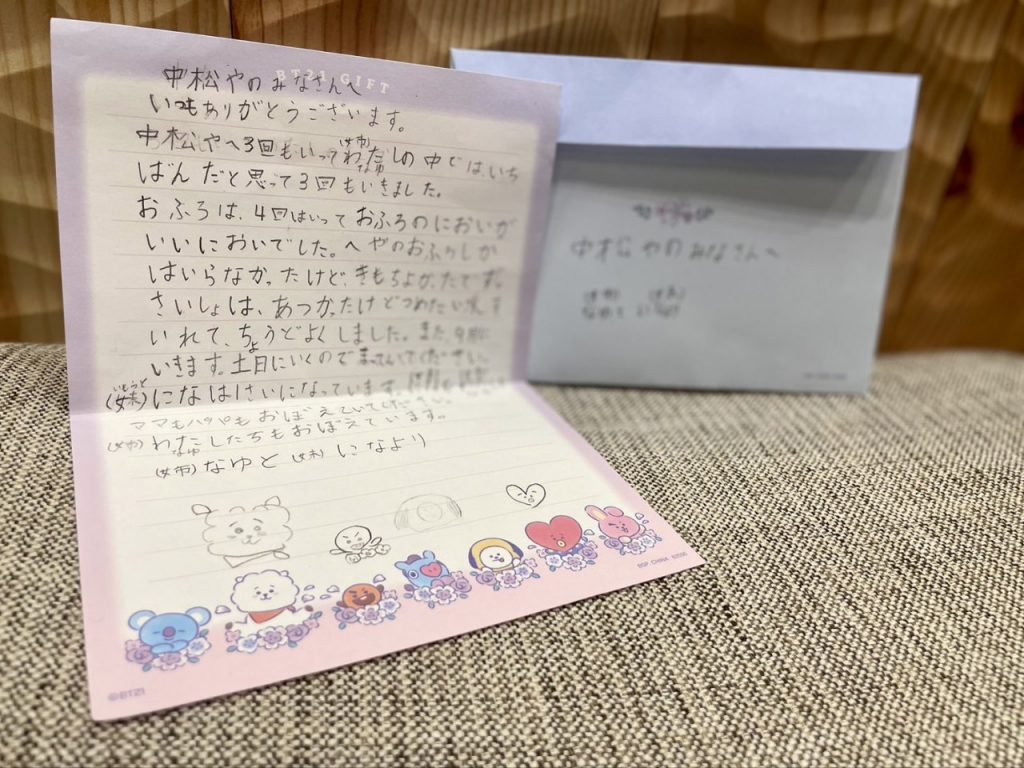 BT21 GIFT
中松やのみなさんへ
いつもありがとうございます。
中松やへ3回もいってわたしの中ではいち
ばんだと思って3回もいきました。
おふろは、4回はいっておふろのにおいが
いいにおいでした。へやのおふろしか
はいらなかったけど、きもちよかったです。
さいしょは、あつかったけどつめたい水を
いれて、ちょうどよくしました。また
いきます。土日にいくのでまっていてください。
(妹)になは1さいになっています。
ママもパパもおぼえていてください。
わたしたちもおぼえています。
(姉)なゆと(妹)になより
©BT21
BGP CHINA
中松やのみなさんへ